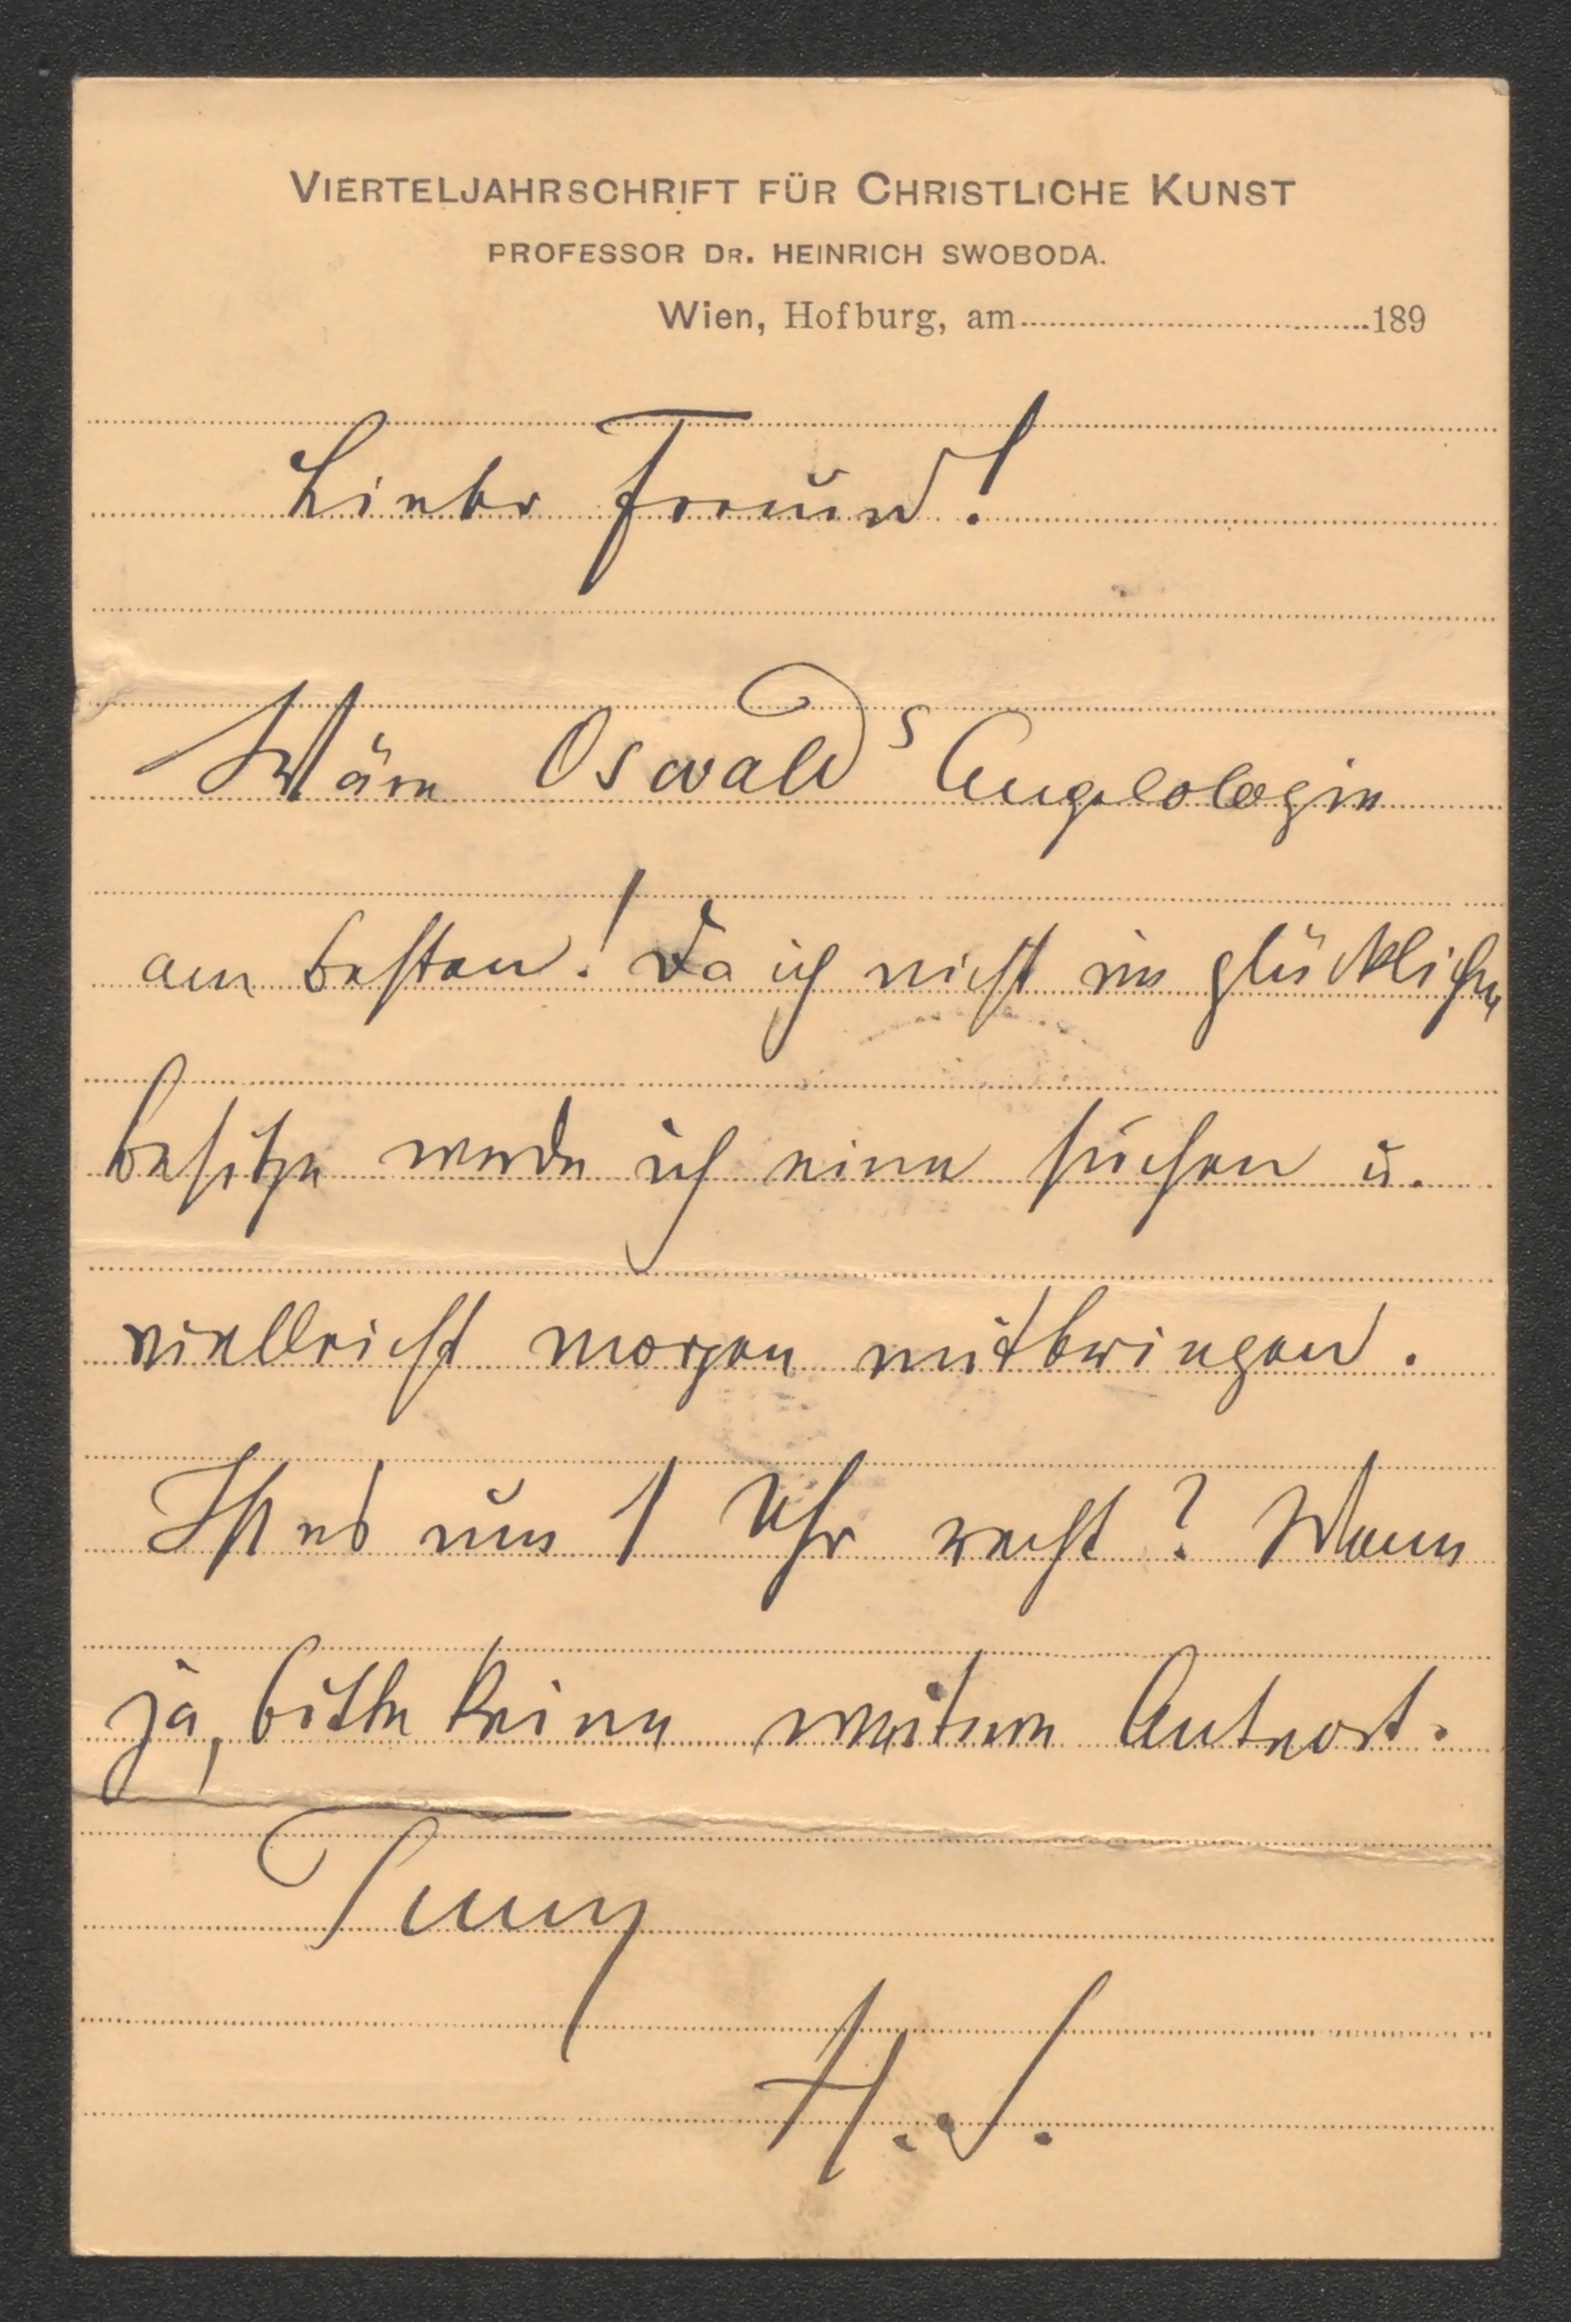 VIERTELJAHRSCHRIFT FÜR CHRISTLICHE KUNST
PROFESSOR DR. HEINRICH SWOBODA.
Wien, Hofburg, am 189
Lieber Freund!
Wäre Oswalds Angelologie
am besten! Da ich nicht im glücklichen
Besitze werde ich eine suchen u.
vielleicht morgen mitbringen.
Ist es um 1 Uhr recht? Wenn
ja, bitte keine weitere Antwort.
H. S.